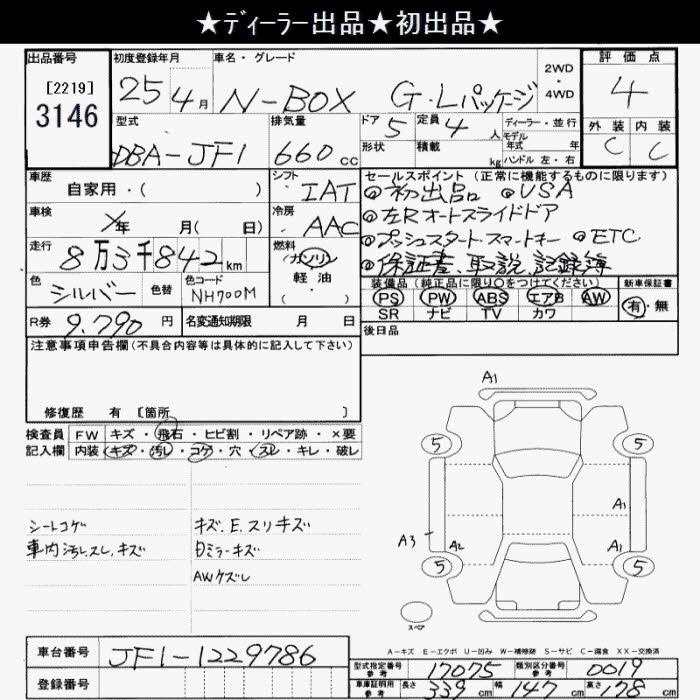 ★ディーラー出品★初出品★
出品番号 初度登録年月 車名・グレード 2WD・4WD 評価点
[2219] 25 4月 N-BOX G・Lパッケージ 4
3146
型式 排気量 ドア 5 定員 4人 ディーラー・並行 外装 内装
DBA-JF1 660cc 形状 積載 kg モデル年式 年 ハンドル 左・右 C C
車歴 シフト セールスポイント (正常に機能するものに限ります)
自家用・( ) IAT ◎初出品 ◎USA
車検 年 月(日) 冷房 AAC ◎左Rオートスライドドア
走行 8万3千842km 燃料 ガソリン ◎プッシュスタート.スマートキー ◎ETC
軽油 ( ・ ) ◎保証書、取説、記録簿
色 シルバー 色替 色コード NH700M 装備品 (純正品に限り○をつけてください) 新車保証書
PS PW ABS エアB AW 有・無
SR ナビ TV カワ
R券 9.790円 名変通知期限 月 日 後日品
注意事項申告欄(不具合内容等は具体的に記入して下さい)
修復歴 有 [箇所 ]
検査員 FW キズ・飛石・ヒビ割・リペア跡・×要
記入欄 内装 キズ・汚レ・コゲ・穴・スレ・キレ・破レ
シートコゲ キズ.E.スリキズ
車内汚レ.スレ.キズ 目ミラーキズ
AWケズレ
A1
5 5
A1
A3 A2 A1
5 5
スペア
A-キズ E-エクボ U-凹み W-補修跡 S-サビ C-腐食 XX-交換済
車台番号 JF1-1229786
登録番号
型式指定番号 参考 17075 類別区分番号 参考 0019
車庫証明用 参考 長さ 339cm 幅 147cm 高さ 178cm